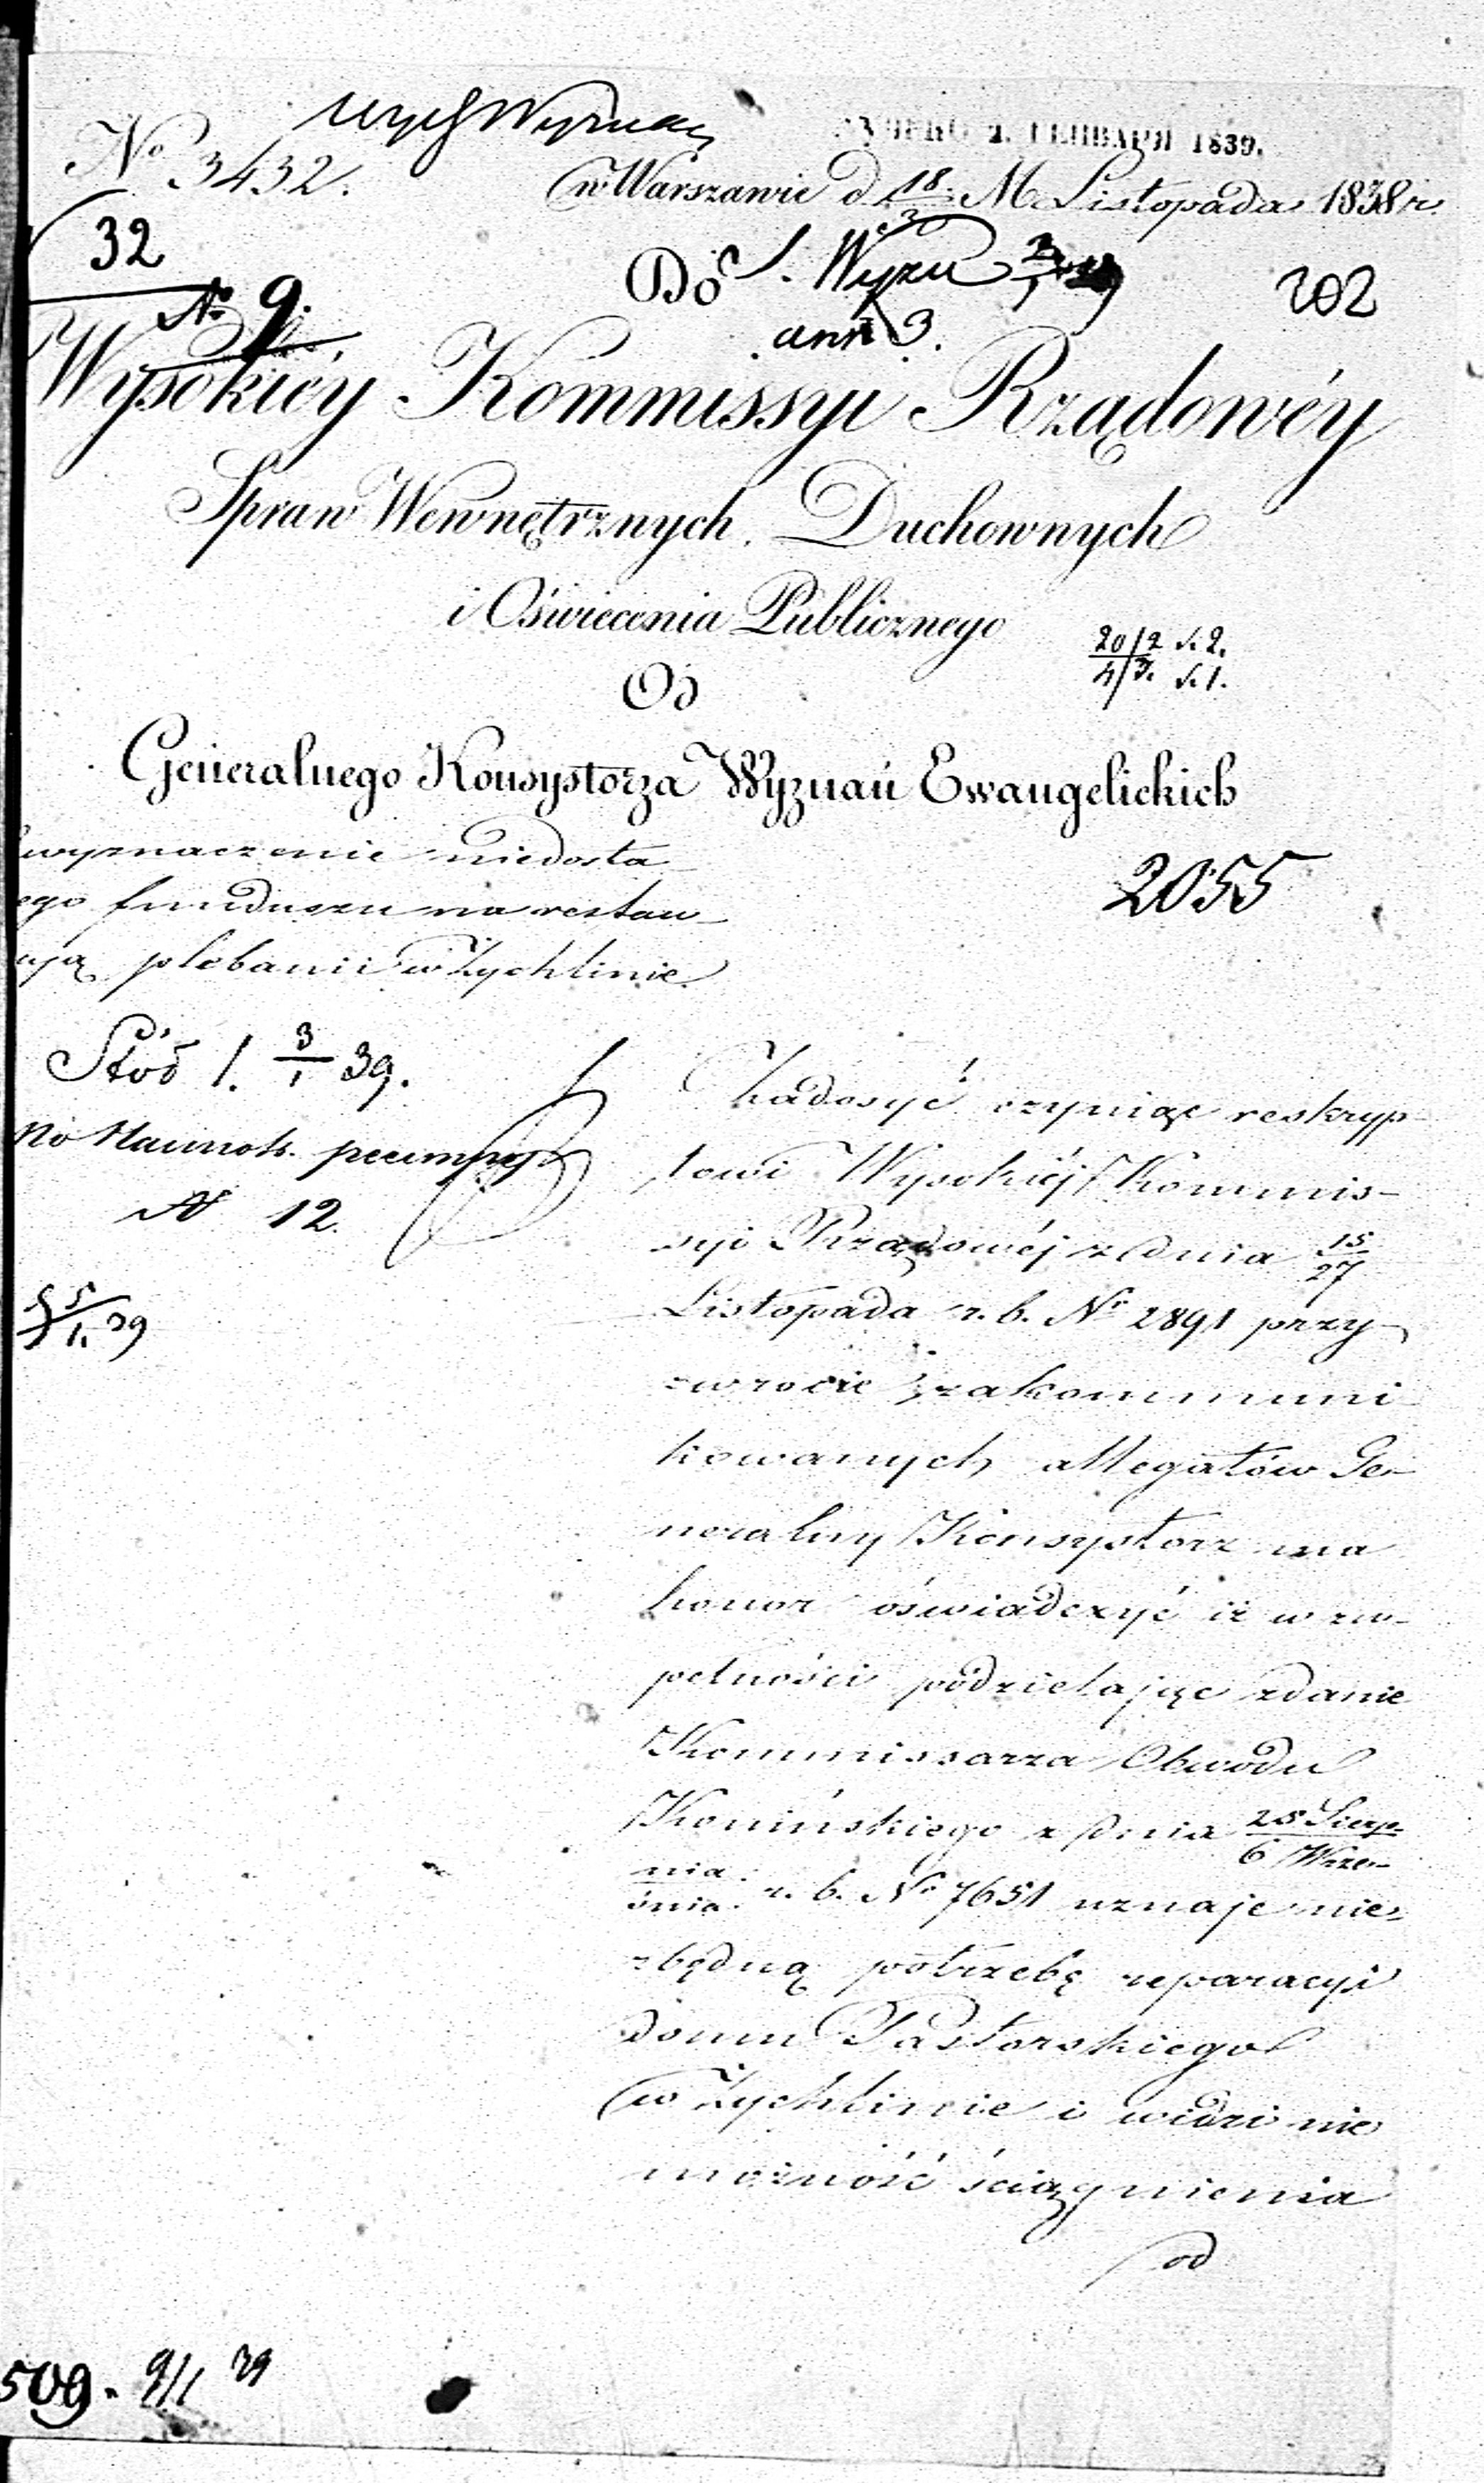 No 3432.
ГЕНВАРЯ 1839.
w Warszawie d 18 M Listopada 1838 r.
32
Do
202
No 9.
ann 3.
Wysokiéy Kommissyi Rządowéy
Spraw Wewnętrznych, Duchownych
i Oświecenia Publicznego
20/2 s. 2.
4/3. s. 1.
Od
Generalnego Konsystorza Wyznań Ewangelickich
wyznaczenie niedosta
ego funduszu na restau-
cyą plebanii w Żychlinie
2055
1. 3/1 39.
No 12.
5/1. 39
Zadosyć czyniąc reskryp-
towi Wysokiéj Kommis-
syi Rządowéj z dnia 15/27
Listopada r. b. No 2891 przy
zwrocie zakommuni
kowanych allegatów Ge-
neralny Konsystorz ma
honor oświadczyć iż w zu-
pełności podzielając zdanie
Kommissarza Obwodu
Konińskiego z dnia 25 Sierp-
6 Wrze-
nia
śnia r. b. No 7651 uznaje nie-
zbędną potrzebę reparacyi
domu Pastorskiego
w Żychlinie i widzi nie
możność ściągnienia
od
509. 9/1 39